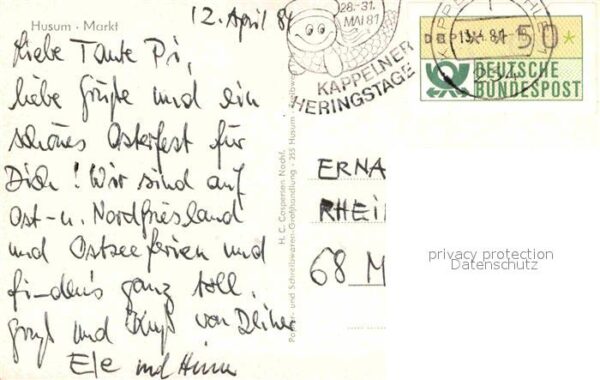 Husum · Markt
12. April 84
Liebe Tante Pi,
liebe Grüße und ein
schönes Osterfest für
Dich! Wir sind auf
Ost- u. Nordfriesland
und Ostseeferien und
finden's ganz toll.
Gruß und Kuß von Deiner
und
H. C. Caspersen Nachf.
Papier- und Schreibwaren-Großhandlung · 255 Husum
28.-31.
MAI 81
KAPPELNER
HERINGSTAGE
DBP
50
DEUTSCHE
BUNDESPOST
ERNA
RHEI
68 M
privacy protection
Datenschutz